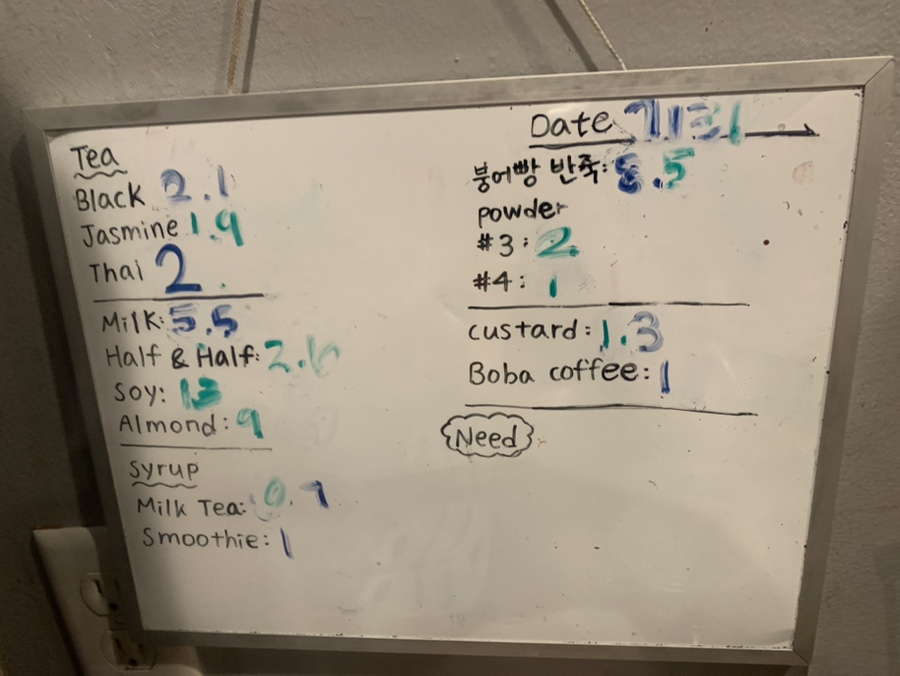 Tea
Black 2.1
Jasmine 1.9
Thai 2.
Milk: 5.5
Half & Half: 2.
Soy: 13
Almond: 9
Syrup
Milk Tea: 0.7
Smoothie: 1
Date
붕어빵 반죽: 8.5
powder
#3: 2.
#4: 1
custard: 1.3
Boba coffee: 1
Need